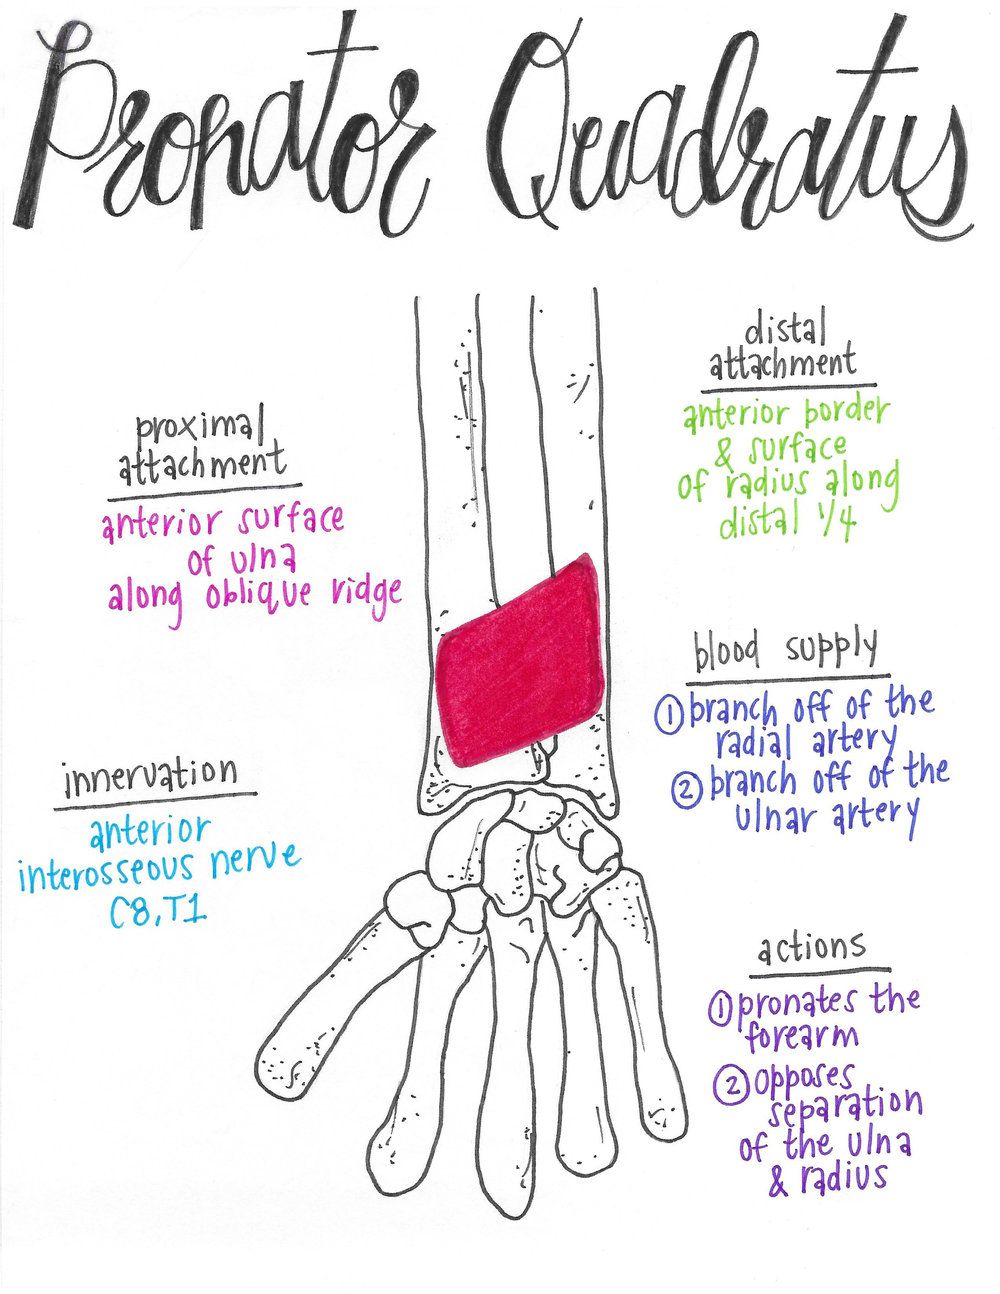 Pronator Quadratus
distal
attachment
anterior border
& surface
of radius along
distal 1/4
proximal
attachment
anterior surface
of ulna
along oblique ridge
blood supply
① branch off of the
radial artery
② branch off of the
ulnar artery
innervation
anterior
interosseous nerve
C8, T1
actions
① pronates the
forearm
② opposes
separation
of the ulna
& radius